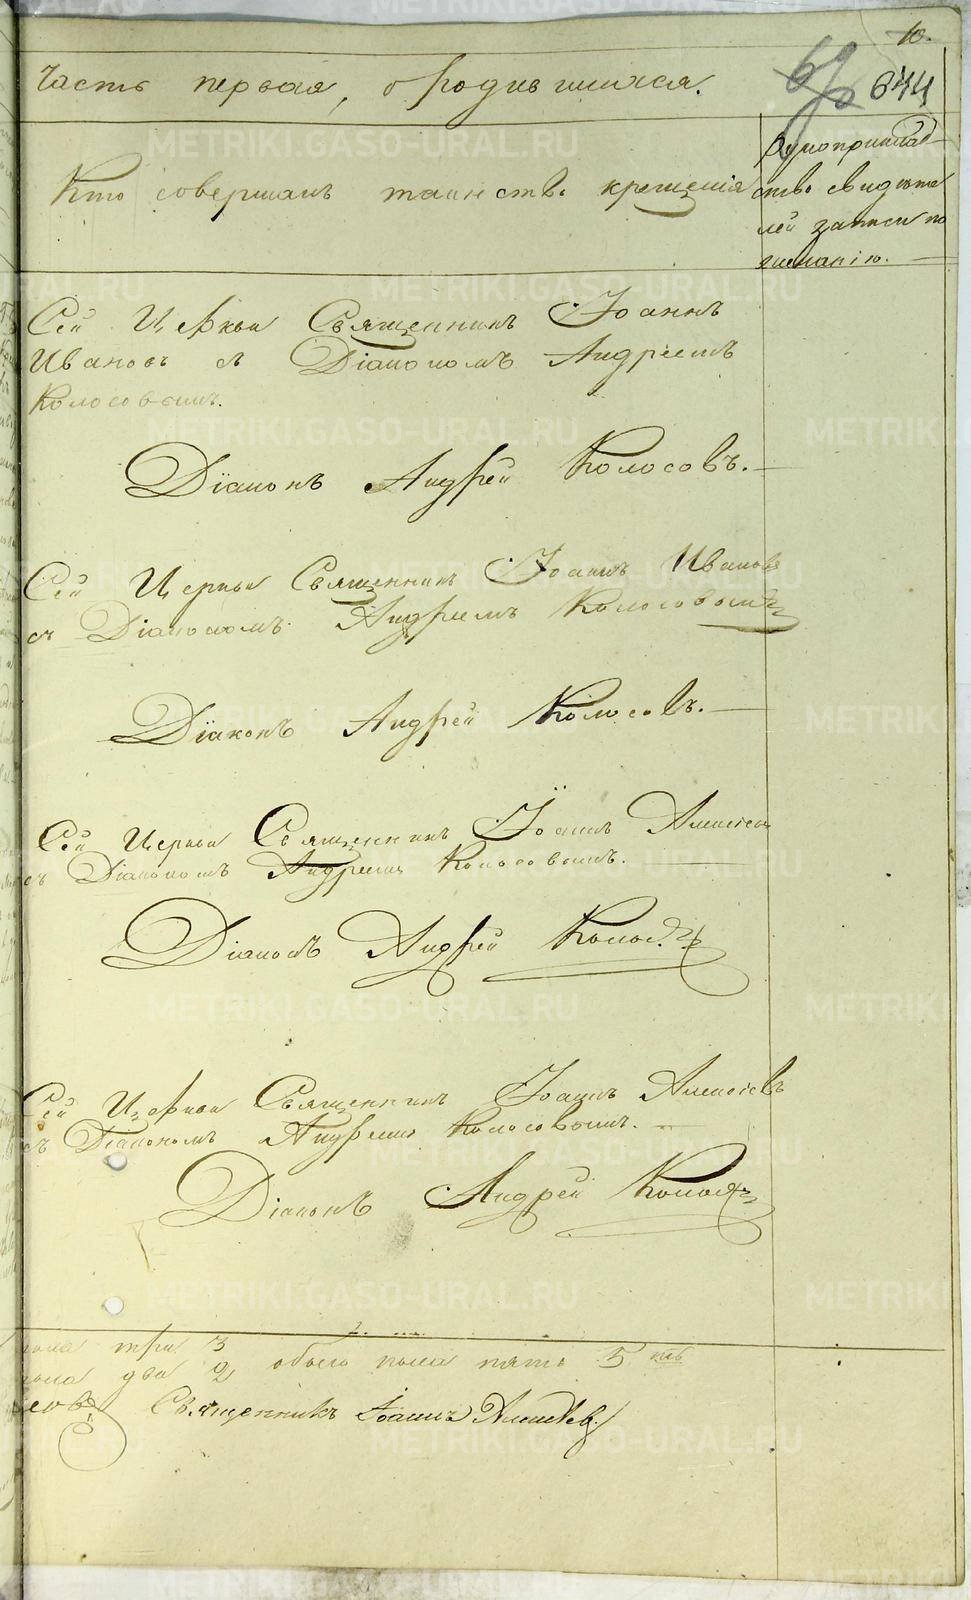 10.
Часть первая, о родившихся.
69
644
Кто совершалъ таинство крещенія
Рукоприклад-
ство свидѣте
лей записи по
желанію. —
Сей Церкви Священникъ Іоаннъ
Ивановъ съ Діакономъ Андреемъ
Колосовымъ.
Діаконъ Андрей Колосовъ. —
Сей Церкви Священникъ Іоаннъ Ивановъ
съ Діакономъ Андреемъ Колосовымъ
Діаконъ Андрей Колосовъ. —
Сей Церкви Священникъ Іоаннъ Алексѣев
съ Діакономъ Андреемъ Колосовымъ. —
Діаконъ Андрей Колосовъ
Сей Церкви Священникъ Іоаннъ Алексѣевъ
съ Діакономъ Андреемъ Колосовымъ. —
Діаконъ Андрей Колосовъ
пола три 3
пола два 2 обоего пола пять 5
Священникъ Іоаннъ Алексѣев.
METRIKI.GASO-URAL.RU